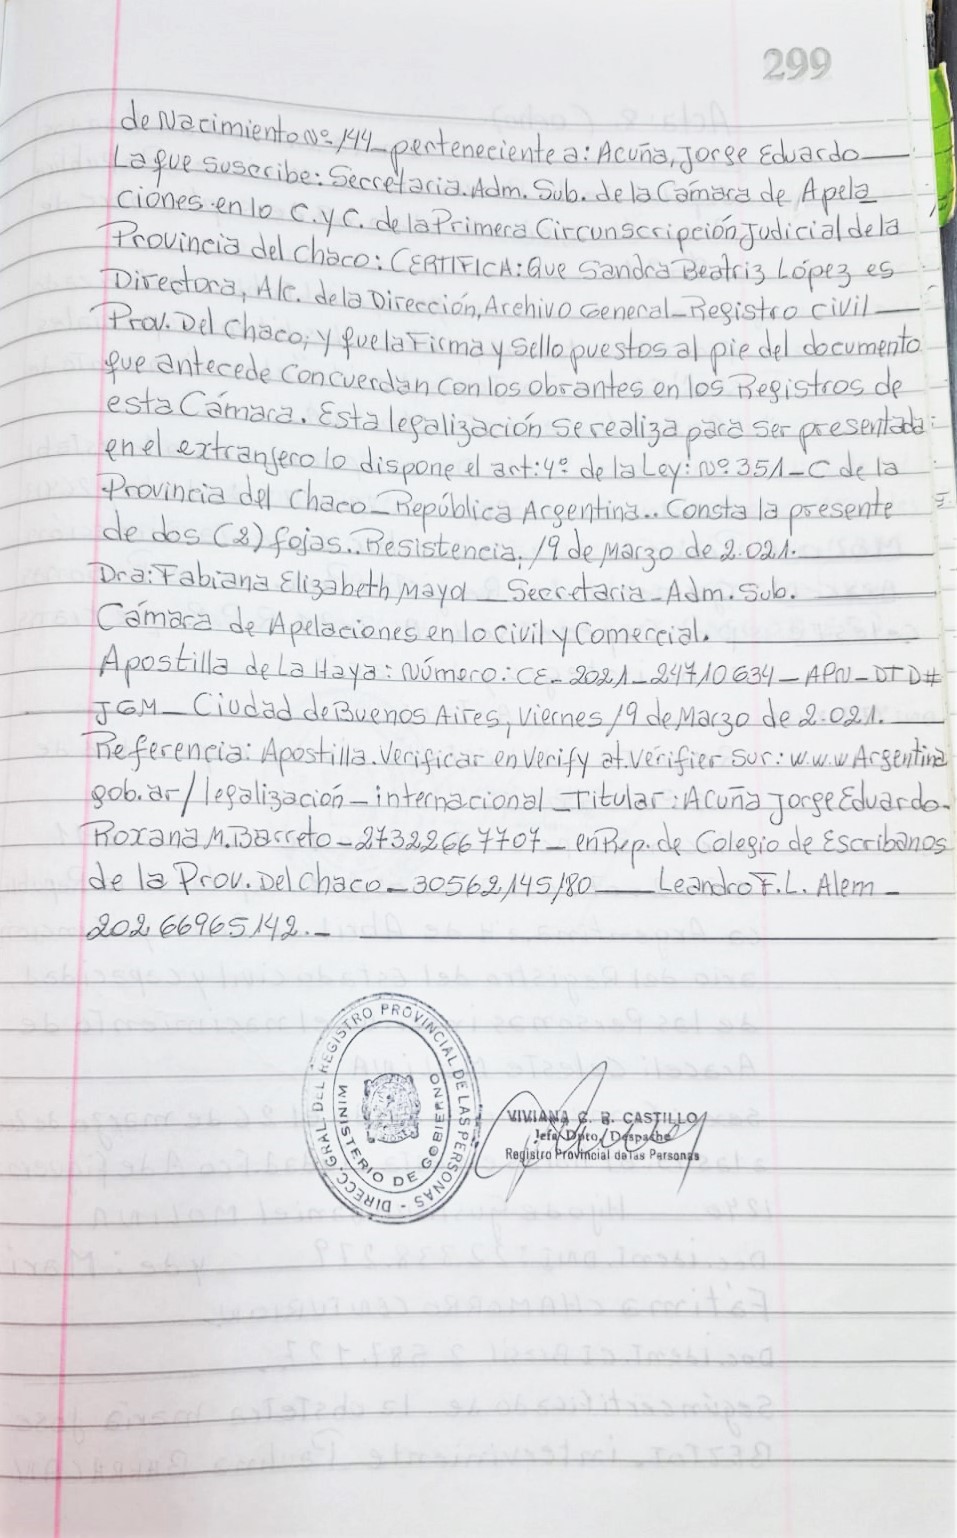 299
de Nacimiento Nº 144_ perteneciente a: Acuña, Jorge Eduardo
La que suscribe: Secretaria. Adm. Sub. de la Cámara de Apela
ciones en lo C. y C. de la Primera Circunscripción Judicial de la
Provincia del Chaco: CERTIFICA: Que Sandra Beatriz López es
Directora, Alc. de la Dirección, Archivo General_Registro Civil
Prov. Del Chaco; y que la Firma y Sello puestos al pie del documento
que antecede Concuerdan con los obrantes en los Registros de
esta Cámara. Esta legalización se realiza para ser presentada
en el extranjero lo dispone el art: 4º de la Ley: Nº 351-C de la
Provincia del Chaco_República Argentina.. Consta la presente
de dos (2) fojas.. Resistencia, 19 de Marzo de 2.021.
Dra: Fabiana Elizabeth Mayol _ Secretaria_Adm. Sub.
Cámara de Apelaciones en lo Civil y Comercial.
Apostilla de La Haya: Número: CE_2021_24710634_APN_DTD#
JGM_ Ciudad de Buenos Aires, Viernes 19 de Marzo de 2.021.
Referencia: Apostilla. Verificar en Verify at. Vérifier Sur: w.w.w Argentina
gob.ar/legalización_internacional_Titular: Acuña Jorge Eduardo.
Roxana M. Barreto_27322667707_ en Rep. de Colegio de Escribanos
de la Prov. Del Chaco_30562145180 Leandro F. L. Alem _
20266965142._
DIRECC. GRAL. DEL REGISTRO PROVINCIAL DE LAS PERSONAS -
MINISTERIO DE GOBIERNO
VIVIANA C. B. CASTILLO
Jefa Dpto. Despacho
Registro Provincial de las Personas